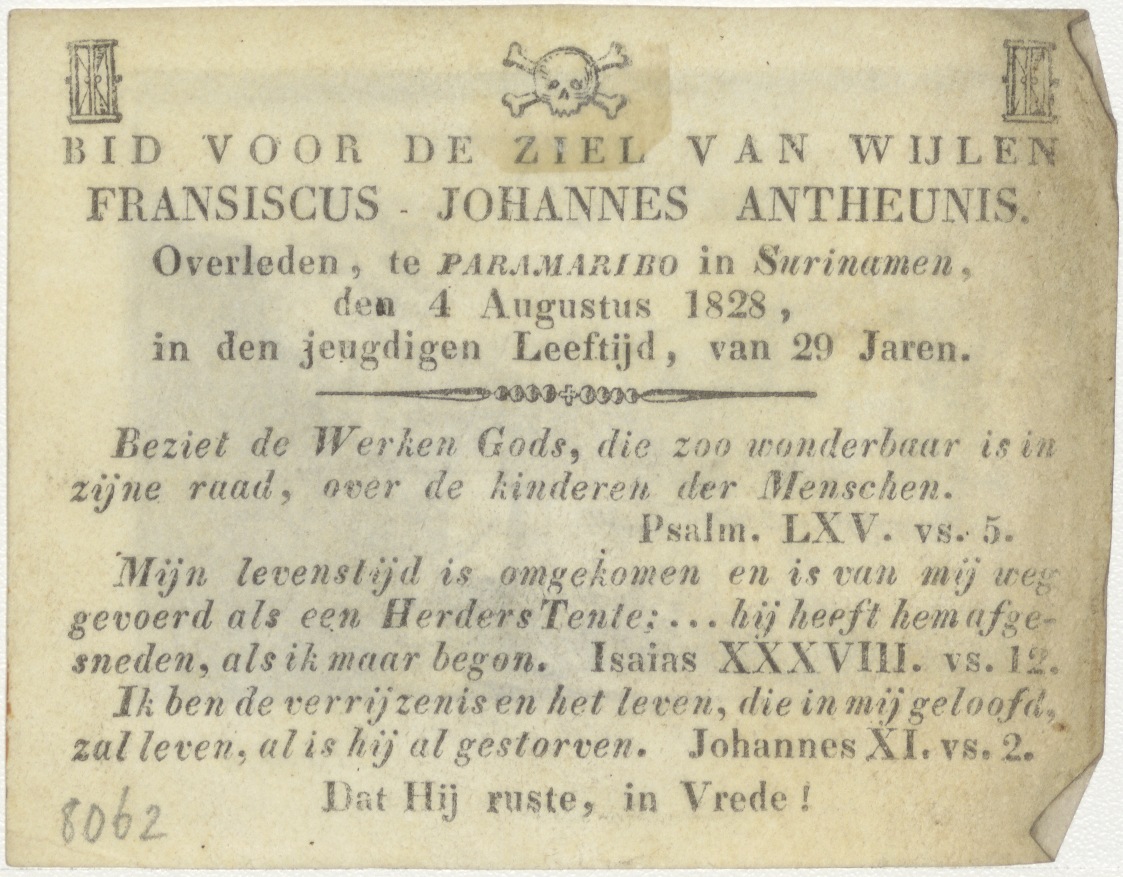 BID VOOR DE ZIEL VAN WIJLEN
FRANSISCUS - JOHANNES ANTHEUNIS.
Overleden, te PARAMARIBO in Surinamen,
den 4 Augustus 1828,
in den jeugdigen Leeftijd, van 29 Jaren.
Beziet de Werken Gods, die zoo wonderbaar is in
zijne raad, over de kinderen der Menschen.
Psalm. LXV. vs. 5.
Mijn levenstijd is omgekomen en is van mij weg
gevoerd als een Herders Tente; ... hij heeft hem afge-
sneden, als ik maar begon. Isaias XXXVIII. vs. 12.
Ik ben de verrijzenis en het leven, die in mij geloofd,
zal leven, al is hij al gestorven. Johannes XI. vs. 2.
Dat Hij ruste, in Vrede!
8062